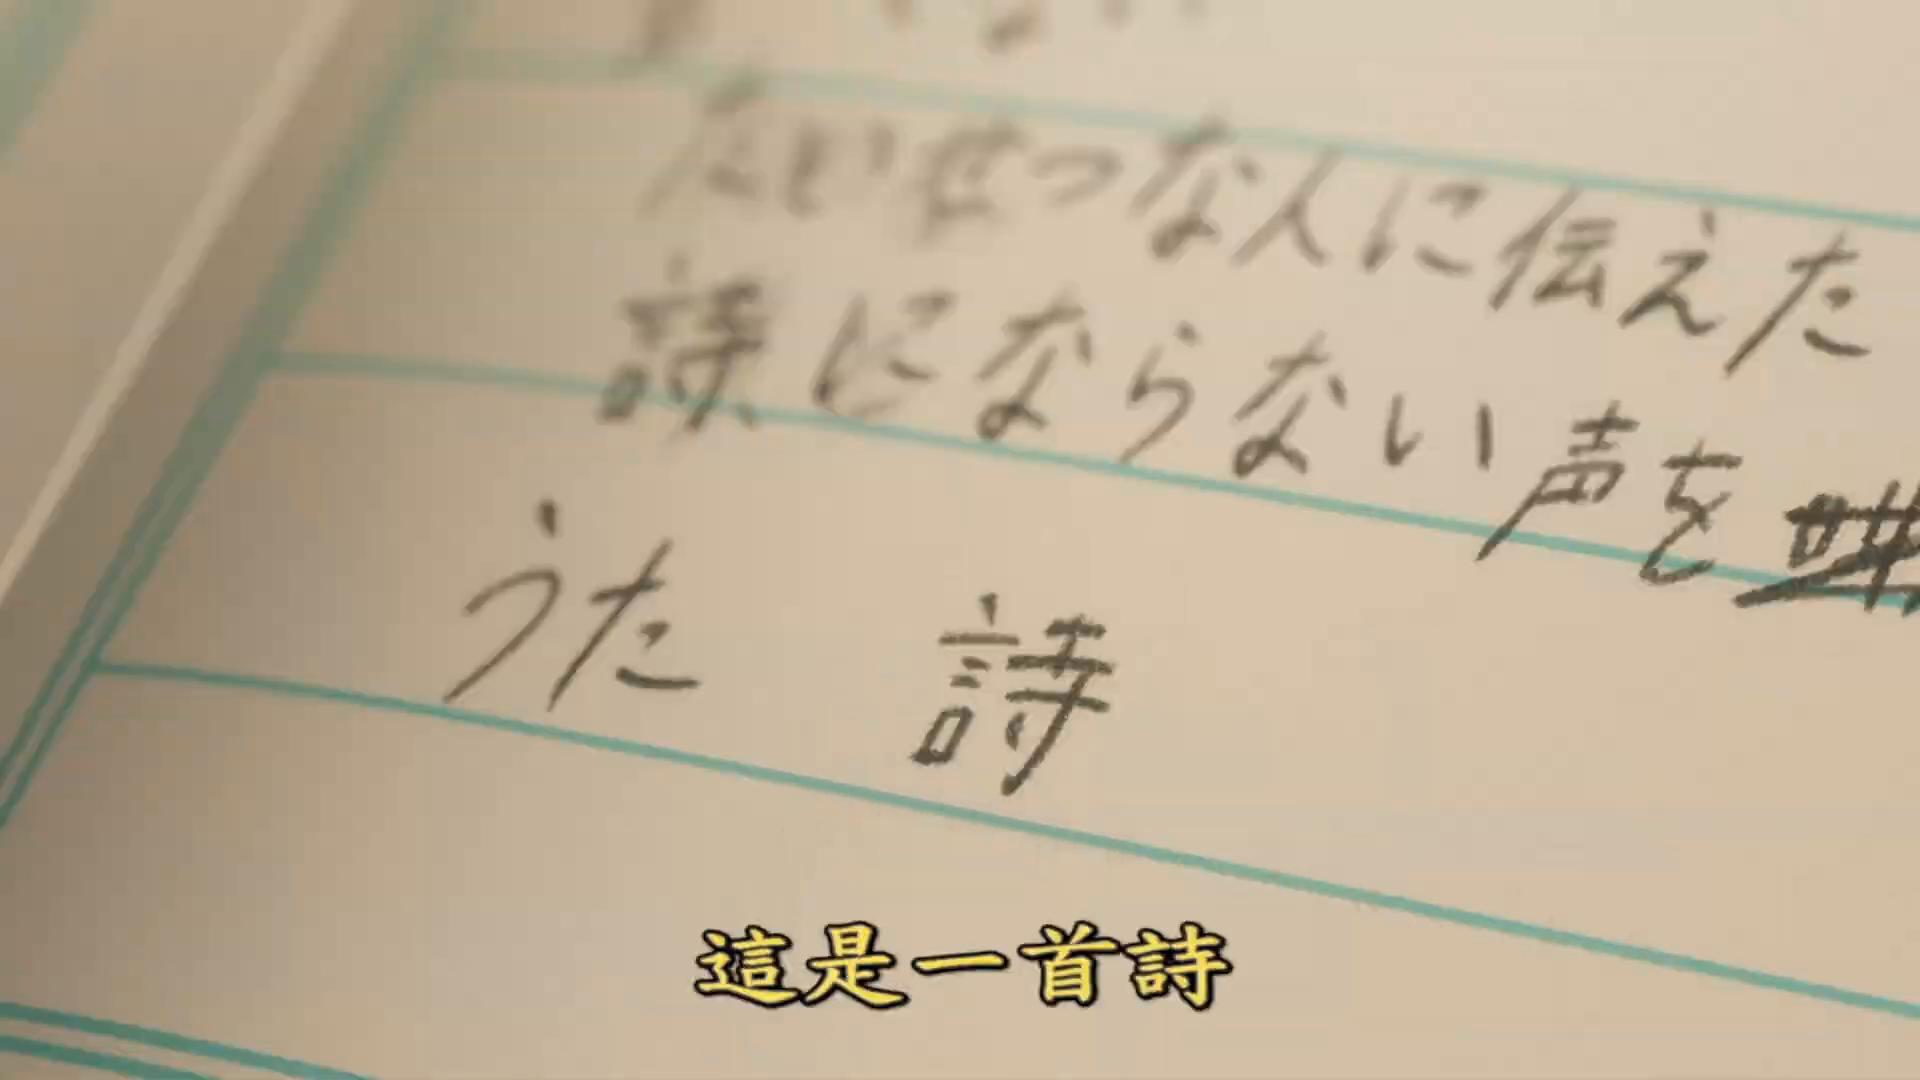 たいせつな人に伝えた
詩にならない声を
うた 詩
這是一首詩